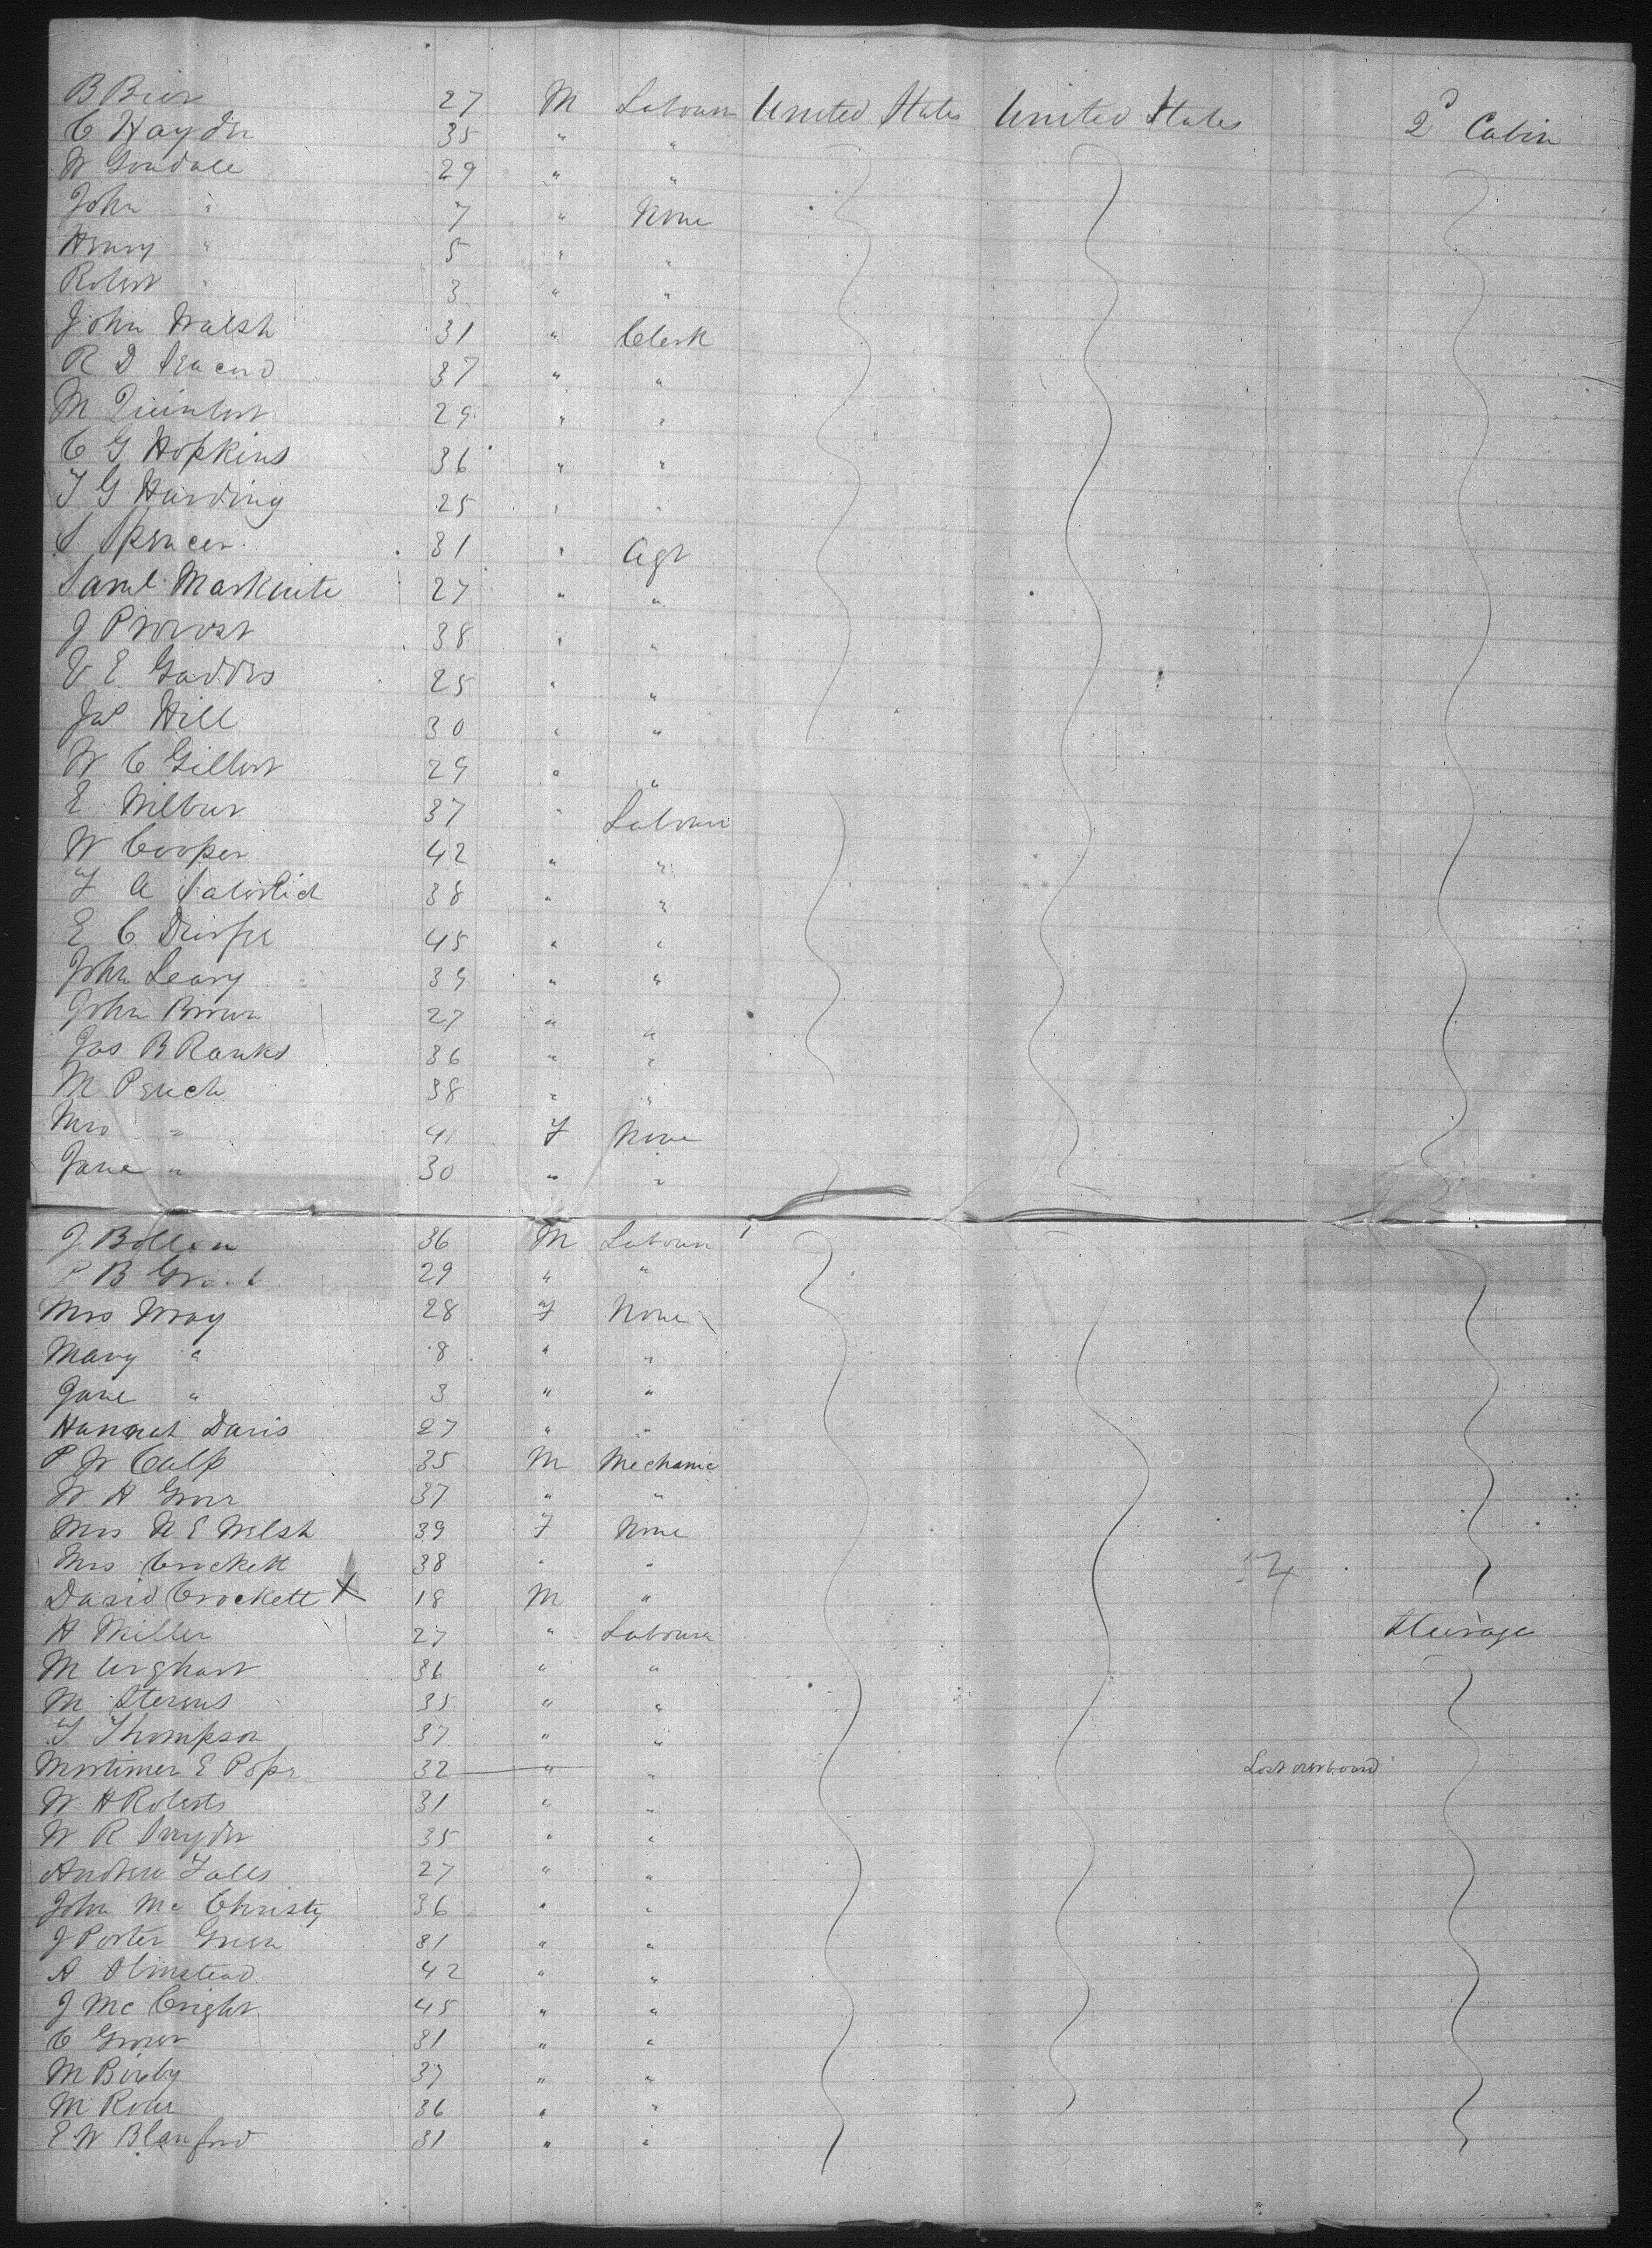 B Bier 27 M Labourer United States United States 2d Cabin
C Hayden 35 " "
W Gondale 29 " "
John " 7 " None
Henry " 5 " "
Robert " 3 " "
John Walsh 31 " Clerk
R D 37 " "
M 29 " "
C G Hopkins 36 " "
T G Harding 25 " "
S Spencer 31 " Agt
Saml 27 " "
J Provost 38 " "
V E Gaddes 25 " "
Jas Hill 30 " "
W C Gilbert 29 " "
E Wilbur 37 " Labourer
W Cooper 42 " "
F A 38 " "
E C 45 " "
John Leary 39 " "
John Brown 27 " "
Jas B Ranks 36 " "
M Peuch 38 " "
Mrs " 41 F None
Jane " 30 " "
J 36 M Labourer
B 29 " "
Mrs Wray 28 F None
Mary " 8 " "
Jane " 3 " "
Hannah Davis 27 " "
P W Culp 35 M Mechanic
W H 37 " "
Mrs N E Welsh 39 F None
Mrs Crockett 38 " "
David Crockett X 18 M " 54
H Miller 27 " Labourer Steerage
M Urghart 36 " "
M Stevens 35 " "
T Thompson 37 " "
Mortimer E Pope 32 " " Lost overboard
W H Roberts 31 " "
W R Snyder 35 " "
Andrew Falls 27 " "
John Mc Christy 36 " "
J Porter Green 31 " "
A Olmstead 42 " "
J Mc Cright 45 " "
C Grover 31 " "
M Bixby 37 " "
M 36 " "
E W Blanford 31 " "